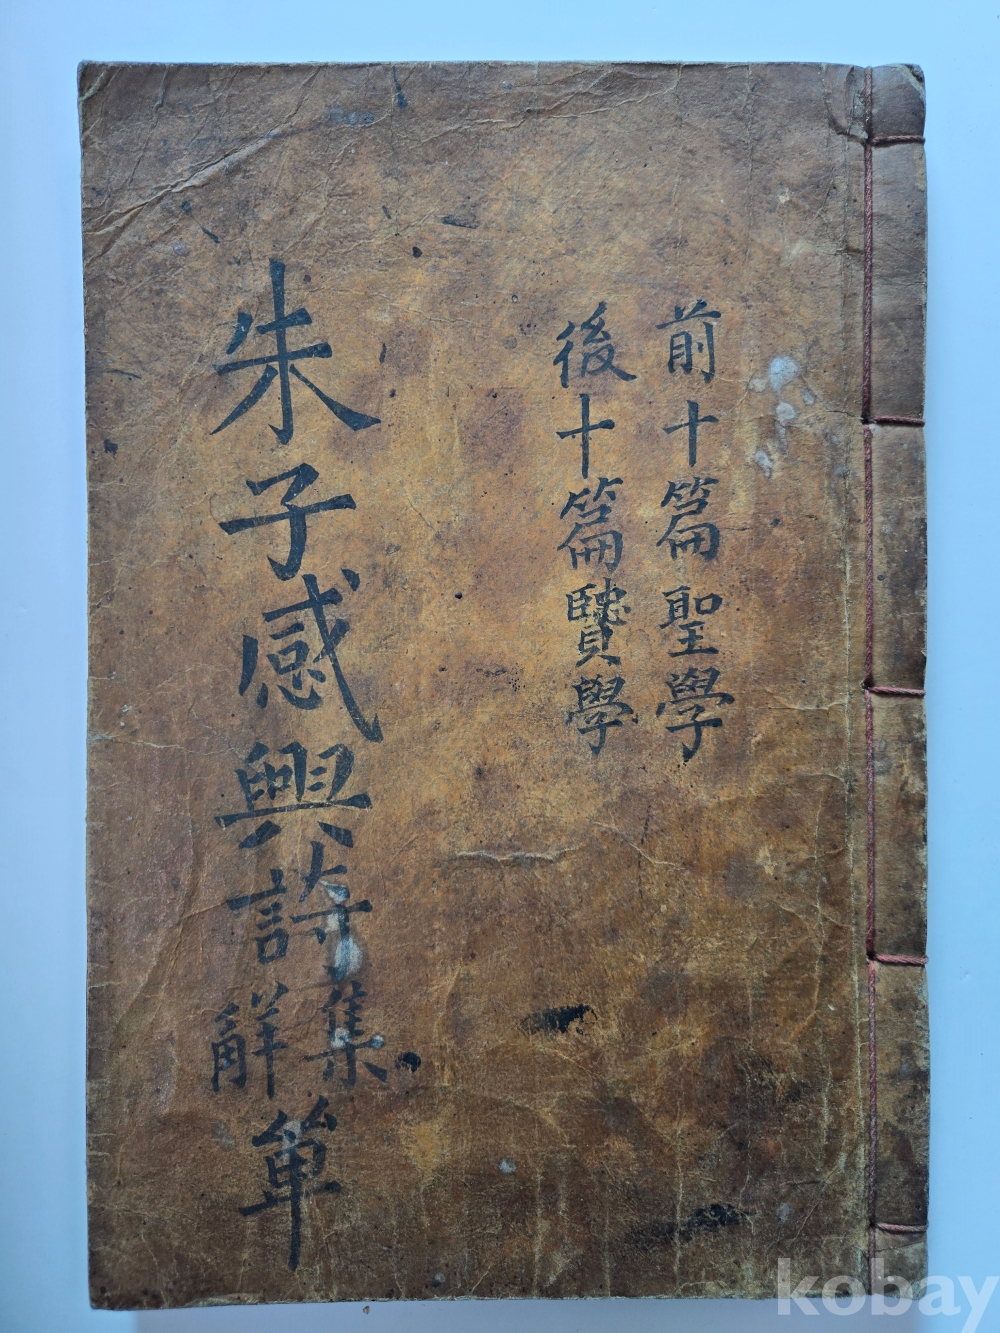 前十篇聖學
後十篇賢學
朱子感興詩集觧単
kobay